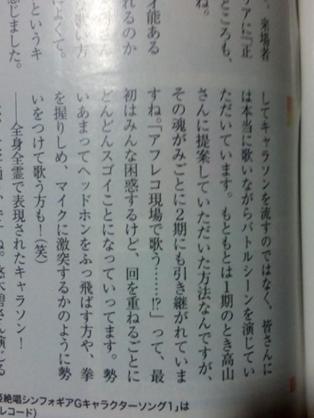 、来場者
してキャラソンを流すのではなく、皆さんに
は本当に歌いながらバトルシーンを演じてい
ただいています。もともとは1期のとき高山
さんに提案していただいた方法なんですが、
その魂がみごとに2期にも引き継がれていま
すね。「アフレコ現場で歌う……!?」って、最
初はみんな困惑するけど、回を重ねるごとに
どんどんスゴイことになっていってます。勢
いあまってヘッドホンをふっ飛ばす方や、拳
を握りしめ、マイクに激突するかのように勢
いをつけて歌う方も！（笑）
――全身全霊で表現されたキャラソン！
姫絶唱シンフォギアGキャラクターソング1」は
レコード）